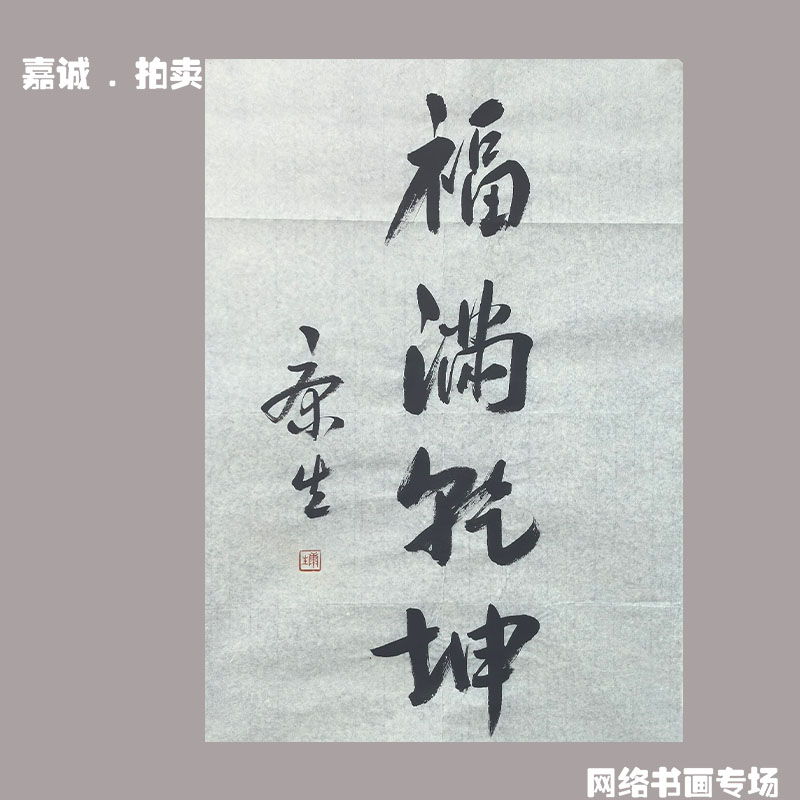 嘉诚 . 拍卖
福满乾坤
康生
网络书画专场